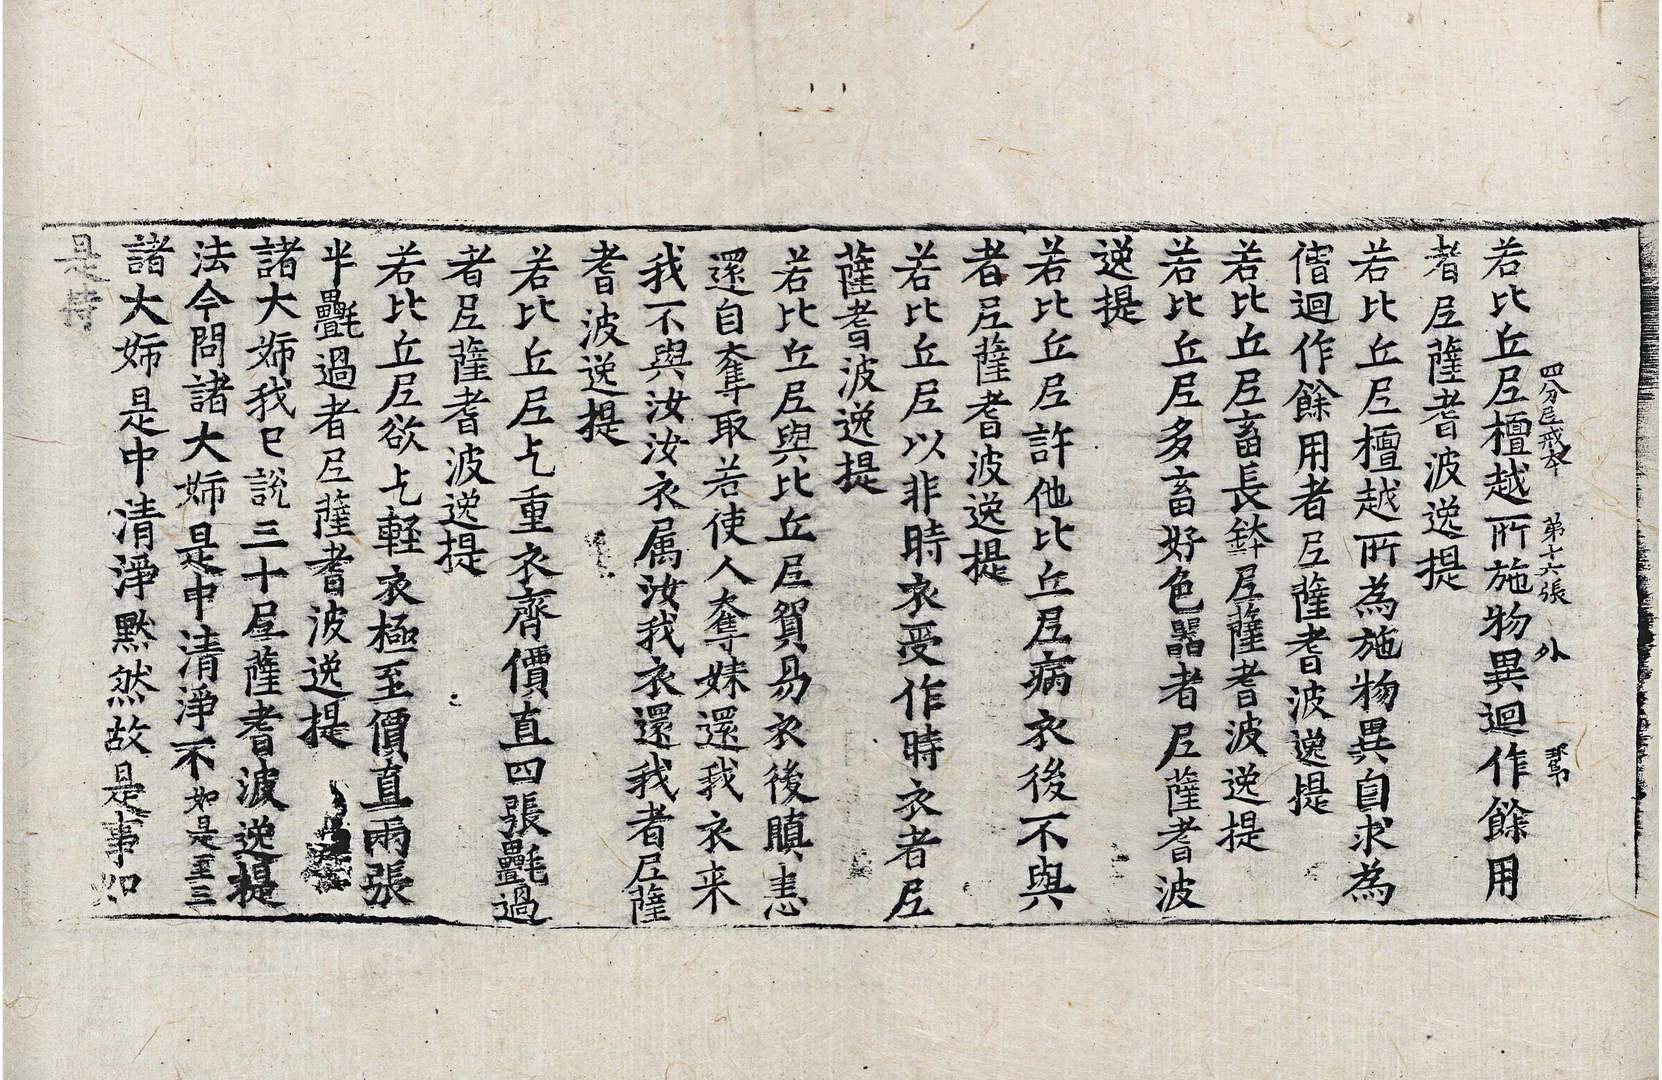 四分尼戒本　第十六張　外
若比丘尼檀越所施物異迴作餘用
者尼薩耆波逸提
若比丘尼檀越所為施物異自求為
僧迴作餘用者尼薩耆波逸提
若比丘尼畜長鉢尼薩耆波逸提
若比丘尼多畜好色器者尼薩耆波
逸提
若比丘尼許他比丘尼病衣後不與
者尼薩耆波逸提
若比丘尼以非時衣受作時衣者尼
薩耆波逸提
若比丘尼與比丘尼貿易衣後瞋恚
還自奪取若使人奪妹還我衣来
我不與汝汝衣属汝我衣還我者尼薩
耆波逸提
若比丘尼乞重衣齊價直四張㲲過
者尼薩耆波逸提
若比丘尼欲乞輕衣極至價直兩張
半㲲過者尼薩耆波逸提
諸大姊我已說三十尼薩耆波逸提
法今問諸大姊是中清淨不如是至三
諸大姊是中清淨默然故是事如
是持